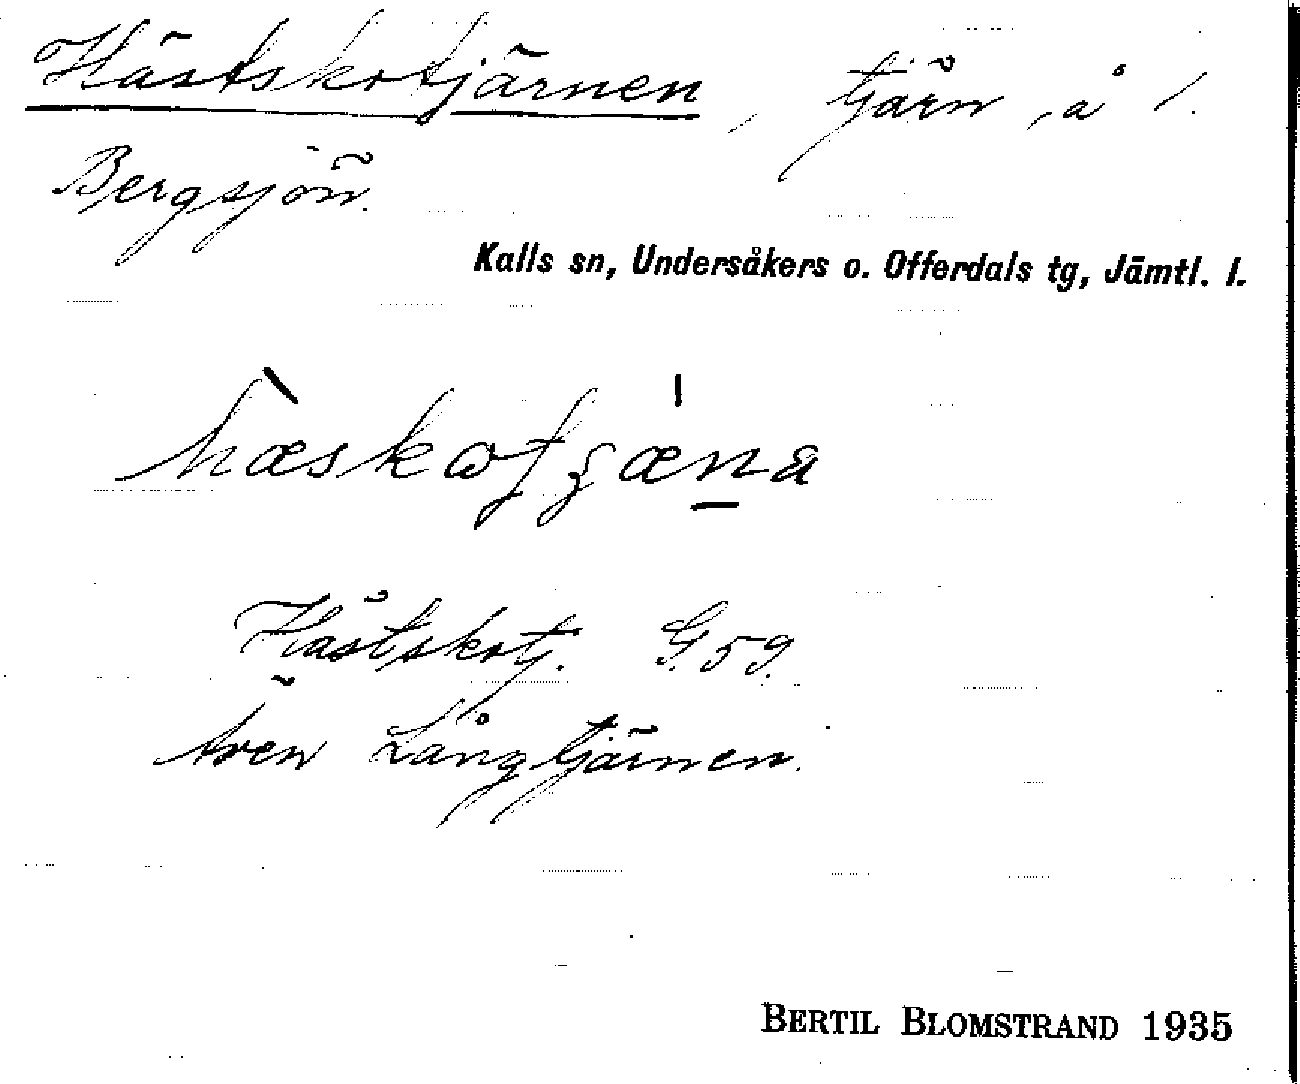 Hästskotjärnen, tjärn, å l.
Bergsjön.
Kalls sn, Undersåkers o. Offerdals tg, Jämtl. l.
hæskotjæna
Hästskotj. G. 59.
även Långtjärnen.
BERTIL BLOMSTRAND 1935